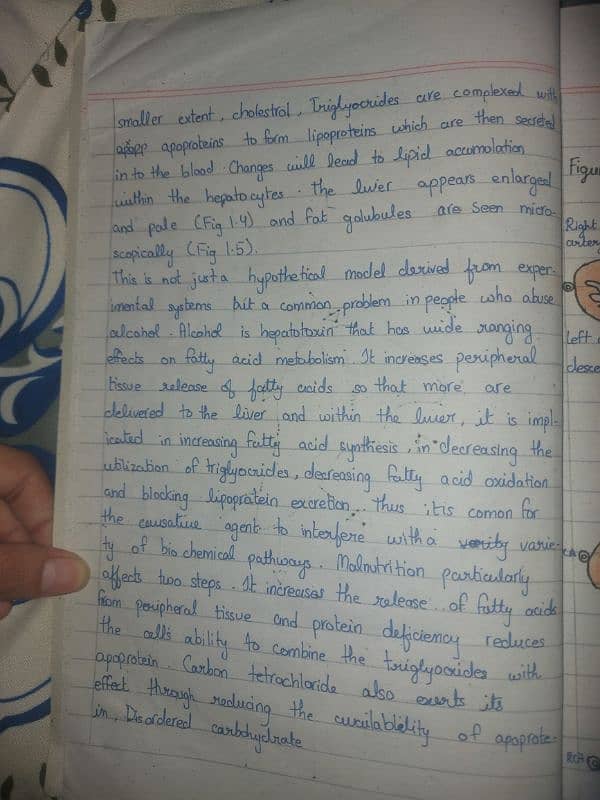 smaller extent, cholestrol, Triglyocrides are complexed with
apoproteins to form lipoproteins which are then secreted
in to the blood. Changes will lead to lipid accumolation
within the hepatocytes. the liver appears enlarged
and pale (Fig 1.4) and fat golubules are seen micro-
scopically (Fig 1.5).
This is not just a hypothetical model derived from exper-
imental systems but a common problem in people who abuse
alcohol. Alcohol is hepatotoxin that has wide ranging
effects on fatty acid metabolism. It increases peripheral
tissue release of fatty acids so that more are
delivered to the liver and within the liver, it is impl-
icated in increasing fatty acid synthesis, in decreasing the
utilization of triglyocrides, decreasing fatty acid oxidation
and blocking lipoprotein excretion. Thus it is comon for
the causative agent to interfere with a varie-
ty of bio chemical pathways. Malnutrition particularly
affects two steps. It increases the release of fatty acids
from peripheral tissue and protein deficiency reduces
the cell's ability to combine the triglyocrides with
apoprotein. Carbon tetrachloride also exerts its
effect through reducing the availability of apoprote-
in. Disordered carbohydrate
Figu
Right
arter
Left
desce
CA
RCA